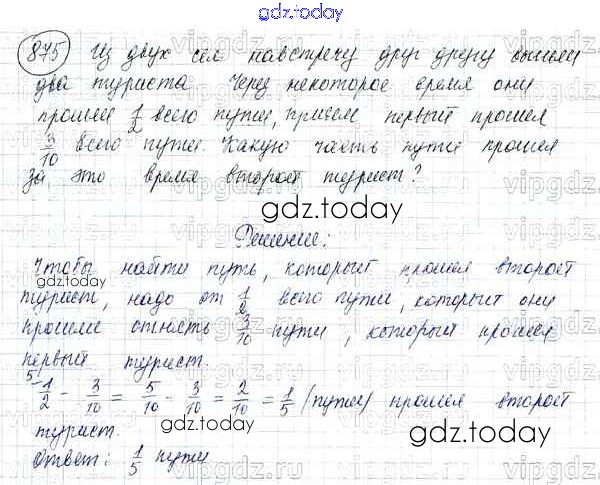 gdz.today
875 Из двух сел навстречу друг другу вышли
два туриста Через некоторое время они
прошли 1/2 всего пути, причем первый прошел
3/10 всего пути. Какую часть пути прошел
за это время второй турист?
gdz.today
Решение:
Чтобы найти путь, который прошел второй
турист, надо от 1/2 всего пути, который они
прошли отнять 3/10 пути, который прошел
первый турист.
1/2 - 3/10 = 5/10 - 3/10 = 2/10 = 1/5 (пути) прошел второй
турист.
gdz.today
Ответ: 1/5 пути
gdz.today